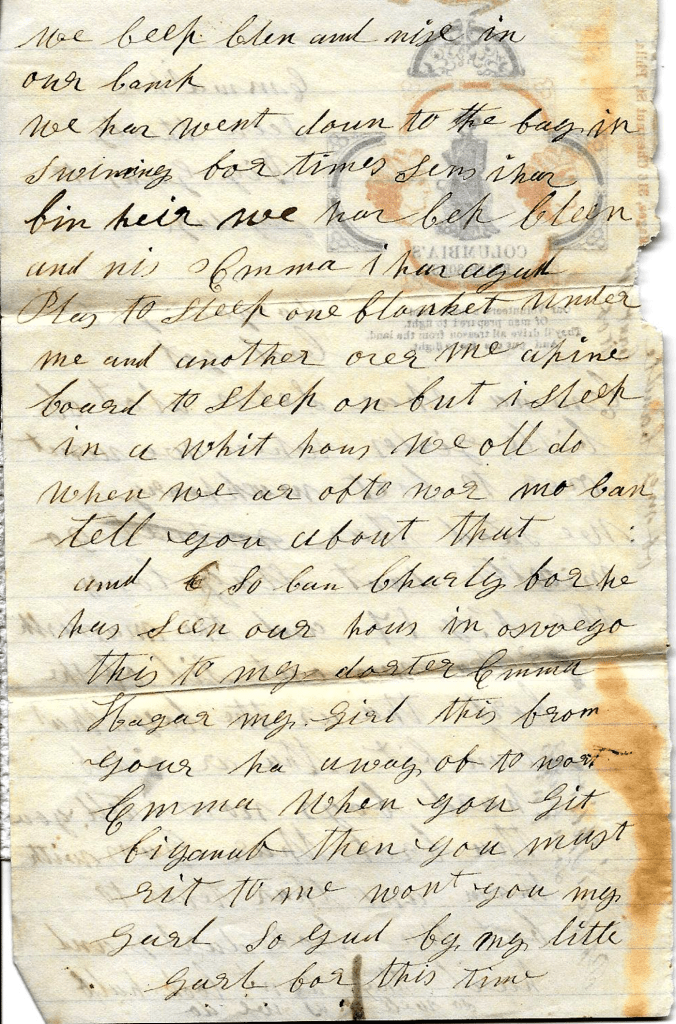 we keep klen and nise in
our kamp
we har went doun to the bay in
swiming for times sens i har
bin heir we har kep kleen
and nis Emma i har a gud
Plas to sleep one blanket under
me and another over me a pine
board to sleep on but i sleep
in a whit hous we oll do
when we ar of to wor mo kan
tell you about that
and so kan Charly for he
has seen our hous in oswego
this to my dorter Emma
Hagar my girl this from
your pa away of to wor
Emma when you git
big anuf then you must
rit to me wont you my
garl so gud by my little
garl for this time
COLUMBIA'S
Of men prepared to fight
They'll drive all treason from the land.